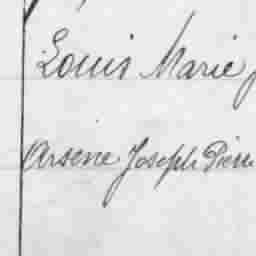 Louis Marie
Arsène Joseph Pierre